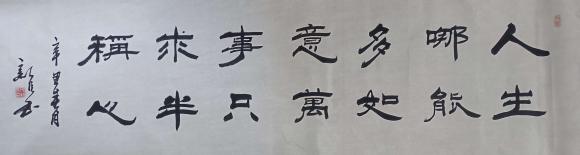 人生
哪能
多如
意萬
事只
求半
稱心
辛丑年春月